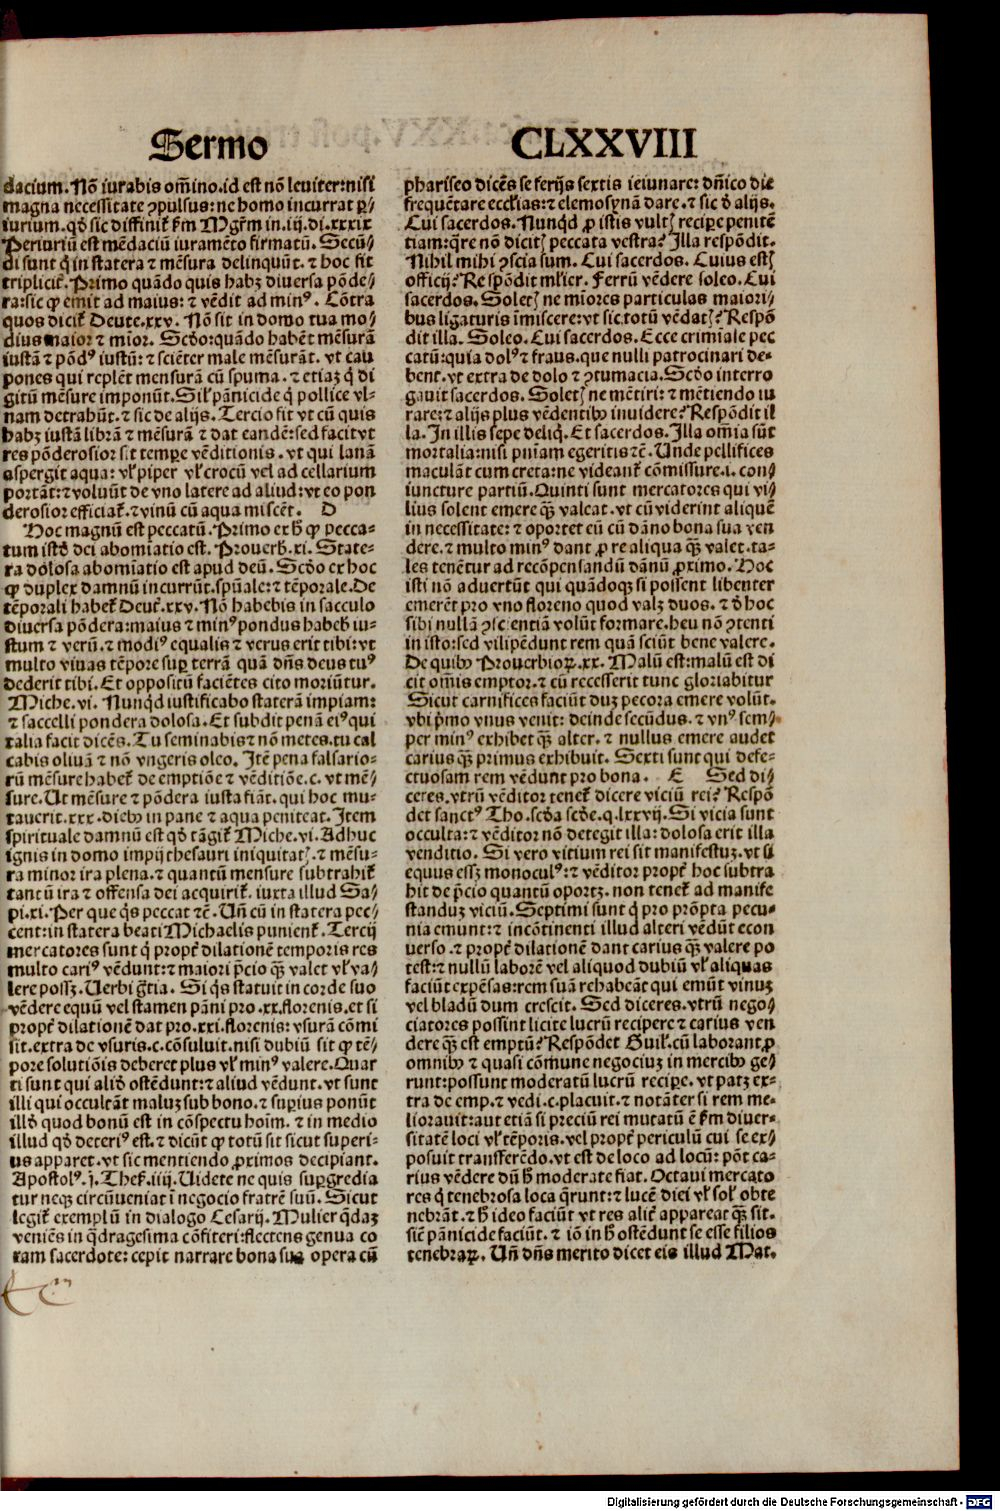 Sermo
CLXXVIII
dacium. Nō iurabis om̄ino. id est nō leuiter: nisi
magna necessitate ꝯpulsus: ne homo incurrat ꝑ⸗
iurium. qd̕ sic diffinit᷑ ẜm Mgr̄m in. iij. di. xxxix
Periuriū est mēdaciū iuramēto firmatū. Secū⸗
di sunt q̇ in statera ⁊ mēsura delinquūt. ⁊ hoc fit
triplicit᷑. Primo quādo quis habꝫ diuersa pōde⸗
ra: sic ꝙ emit ad maius: ⁊ vēdit ad minꝰ. Cōtra
quos dicit᷑ Deute. xxv. Nō sit in domo tua mo⸗
dius maior ⁊ mior. Scd̕o: quādo habēt mēsurā
iustā ⁊ pōdꝰ iustū: ⁊ sciēter male mēsurāt. vt cau
pones qui replēt mensurā cū spuma. ⁊ etiaꝫ q̇ di
gitū mēsure imponūt. Sil̕ pānicide q̇ pollice vl⸗
nam detrahūt. ⁊ sic de alijs. Tercio fit vt cū quis
habꝫ iustā librā ⁊ mēsurā ⁊ dat eandē: sed facit vt
res pōderosior sit tempe vēditionis. vt qui lanā
aspergit aqua: vl̕ piper vl̕ crocū vel ad cellarium
portāt: ⁊ voluūt de vno latere ad aliud: vt eo pon
derosior efficiat᷑. ⁊ vinū cū aqua miscēt. D
Hoc magnū est peccatū. Primo ex h̕ ꝙ pecca⸗
tum istd̕ dei abomiatio est. Prouerb̕. xi. State⸗
ra dolosa abomiatio est apud deū. Scd̕o ex hoc
ꝙ duplex damnū incurrūt. spūale: ⁊ tēporale. De
tēporali habet᷑ Deut᷑. xxv. Nō habebis in sacculo
diuersa pōdera: maius ⁊ minꝰ pondus habeb̕ iu⸗
stum ⁊ verū. ⁊ modiꝰ equalis ⁊ verus erit tibi: vt
multo viuas tēpore suꝑ terrā quā dn̄s deus tuꝰ
dederit tibi. Et oppositū faciētes cito moriūtur.
Miche. vi. Nunqd̕ iustificabo staterām impiam:
⁊ saccelli pondera dolosa. Et subdit penā eiꝰ qui
talia facit dicēs. Tu seminabis ⁊ nō metes. tu cal
cabis oliuā ⁊ nō vngeris oleo. Itē pena falsario⸗
rū mēsure habet᷑ de emptiōe ⁊ vēditiōe. c. vt mē⸗
sure. Ut mēsure ⁊ pōdera iusta fiāt. qui hoc mu⸗
tauerit. xxx. diebꝰ in pane ⁊ aqua peniteat. Item
spirituale damnū est qd̕ tāgit᷑ Miche. vi. Adhuc
ignis in domo impij thesauri iniquitatꝭ. ⁊ mēsu⸗
ra minor ira plena. ⁊ quantū mensure subtrahit᷑
tantū ira ⁊ offensa dei acquirit᷑. iuxta illud Sa⸗
pi. xi. Per que q̇s peccat ⁊c̄. Uñ cū in statera pec⸗
cent: in statera beati Michaelis punient᷑. Tercij
mercatores sunt q̇ propt᷑ dilationē temporis res
multo cariꝰ vēdunt: ⁊ maiori p̄cio qꝫ valet vl̕ va⸗
lere possꝫ. Uerbi gr̄tia. Si q̇s statuit in corde suo
vēdere equū vel stamen pāni pro. xx. florenis. et si
propt᷑ dilationē dat pro. xxi. florenis: vsurā cōmi
sit. extra de vsuris. c. cōsuluit. nisi dubiū sit ꝙ tē⸗
pore solutiōis deberet plus vl̕ minꝰ valere. Quar
ti sunt qui aliđ ostēdunt: ⁊ aliud vēdunt. vt sunt
illi qui occultāt maluꝫ sub bono. ⁊ suꝑius ponūt
illđ quod bonū est in cōspectu hoīm. ⁊ in medio
illud qd̕ deteriꝰ est. ⁊ dicūt ꝙ totū sit sicut superi⸗
us apparet. vt sic mentiendo ꝓximos decipiant.
Apostolꝰ. j. Thes̕. iiij. Uidete ne quis suꝑgredia
tur neqꝫ circūueniat ī negocio fratrē suū. Sicut
legit᷑ exemplū in dialogo Cesarij. Mulier q̄daꝫ
veniēs in q̄dragesima cōfiteri: flectens genua co
ram sacerdote: cepit narrare bona sua opera cū
phariseo dicēs se ferijs sextis ieiunare: dn̄ico die
frequētare eccl̕ias: ⁊ elemosynā dare. ⁊ sic đ alijs.
Cui sacerdos. Nunqd̕ ꝓ istis vultꝭ reciꝑe penitē
tiam: q̄re nō dicitꝭ peccata vestra? Illa respōdit.
Nihil mihi ꝯscia sum. Cui sacerdos. Cuius estꝭ
officij? Respōdit ml̕ier. Ferrū vēdere soleo. Cui
sacerdos. Soletꝭ ne miores particulas maiori⸗
bus ligaturis īmiscere: vt sic totū vēdatꝭ? Respō
dit illa. Soleo. Cui sacerdos. Ecce crimiale pec
catū: quia dolꝰ ⁊ fraus. que nulli patrocinari de⸗
bent. vt extra de dolo ⁊ ꝯtumacia. Scd̕o interro
gauit sacerdos. Soletꝭ ne mētiri: ⁊ mētiendo iu
rare: ⁊ alijs plus vēdentibꝰ inuidere? Respōdit il
la. In illis sepe deliq̇. Et sacerdos. Illa om̄ia sūt
mortalia: nisi pn̄iam egeritis ⁊c̄. Unde pellifices
maculāt cum creta: ne videant᷑ cōmissure. i. con⸗
iuncture partiū. Quinti sunt mercatores qui vi⸗
lius solent emere qꝫ valeat. vt cū viderint aliquē
in necessitate: ⁊ oportet eū cū dāno bona sua ven
dere. ⁊ multo minꝰ dant ꝓ re aliqua qꝫ valet. ta⸗
les tenētur ad recōpensandū dānū ꝓximo. Hoc
isti nō aduertūt qui quādoqꝫ si possent libenter
emerēt pro vno floreno quod valꝫ duos. ⁊ đ hoc
sibi nullā ꝯscientiā volūt formare. heu nō ꝯtenti
in isto: sed vilipēdunt rem quā sciūt bene valere.
De quibꝰ Prouerbioꝝ. xx. Malū est: malū est di
cit om̄is emptor. ⁊ cū recesserit tunc gloriabitur
Sicut carnifices faciūt duꝫ pecora emere volūt.
vbi p̄mo vnus venit: deinde secūdus. ⁊ vnꝰ sem⸗
per minꝰ exhibet qꝫ alter. ⁊ nullus emere audet
carius qꝫ primus exhibuit. Sexti sunt qui defe⸗
ctuosam rem vēdunt pro bona. E Sed di⸗
ceres. vtrū vēditor tenet᷑ dicere viciū rei? Respō
det sanctꝰ Tho. scd̕a scd̕e. q. lxxvij. Si vicia sunt
occulta: ⁊ vēditor nō detegit illa: dolosa erit illa
venditio. Si vero vitium rei sit manifestuꝫ. vt si
equus essꝫ monoculꝰ: ⁊ vēditor propt᷑ hoc subtra
hit de p̄cio quantū oportꝫ. non tenet᷑ ad manife
standuꝫ viciū. Septimi sunt q̇ pro prōpta pecu⸗
nia emunt: ⁊ incōtinenti illud alteri vēdūt econ
uerso. ⁊ propt᷑ dilationē dant carius qꝫ valere po
test: ⁊ nullū laborē vel aliquod dubiū vl̕ aliquas
faciūt expēsas: rem suā rehabeāt qui emūt vinuꝫ
vel bladū dum crescit. Sed diceres. vtrū nego⸗
ciatores possint licite lucrū recipere ⁊ carius ven
dere qꝫ est emptū? Respōdet Guil̕. cū laborant ꝓ
omnibꝰ ⁊ quasi cōmune negociuꝫ in mercibꝰ ge⸗
runt: possunt moderatū lucrū reciꝑe. vt patꝫ ex⸗
tra de emp. ⁊ vedi. c. placuit. ⁊ notāter si rem me⸗
liorauit: aut etiā si preciū rei mutatū ē ẜm diuer⸗
sitatē loci vl̕ tēporis. vel propt᷑ periculū cui se ex⸗
posuit transferēdo. vt est de loco ad locū: pōt ca⸗
rius vēdere dū h̕ moderate fiat. Octaui mercato
res q̇ tenebrosa loca q̄runt: ⁊ lucē diei vl̕ sol̕ obte
nebrāt. ⁊ h̕ ideo faciūt vt res alit᷑ appareat qꝫ sit.
siċ pānicide faciūt. ⁊ iō in h̕ ostēdunt se esse filios
tenebraꝝ. Uñ dn̄s merito dicet eis illud Mat.
Digitalisierung gefördert durch die Deutsche Forschungsgemeinschaft - DFG